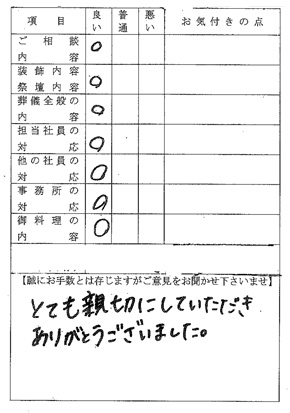 項目 良い 普通 悪い お気付きの点
ご相談内容 ○
装飾内容祭壇内容 ○
葬儀全般の内容 ○
担当社員の対応 ○
他の社員の対応 ○
事務所の対応 ○
御料理の内容 ○
【誠にお手数とは存じますがご意見をお聞かせ下さいませ】
とても親切にしていただき
ありがとうございました。